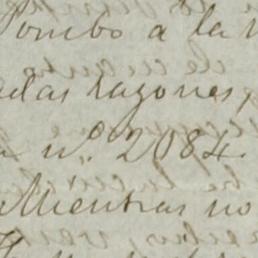 Pombo á la
adas razones,
nº. 2084.
Mientras no